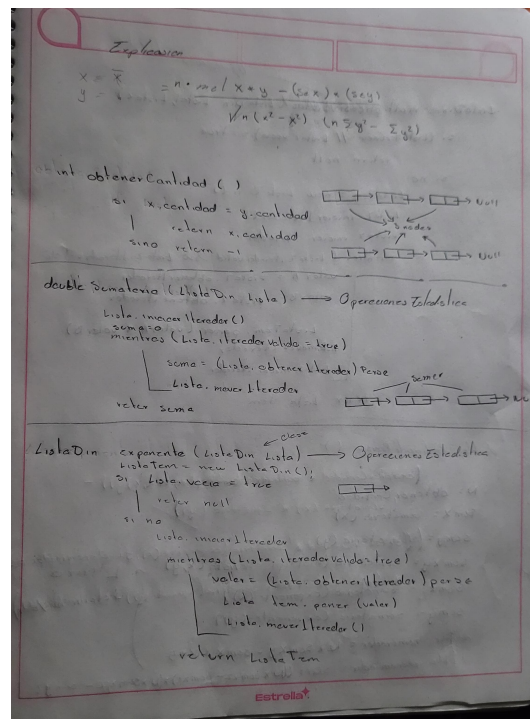 Explicacion
x = x̄
y =
= n · mul x * y - (sn x) * (sn y)
√n (x² - x²) (n Σy² - Σy²)
int obtenerCantidad ()
si x.cantidad = y.cantidad
retern x.cantidad
sino retern -1
Null
5 nodos
Null
double Sumatoria (ListaDin Lista) → Opereciones Estedistica
Lista.iniciarIterador()
suma=0
mientras (Lista.iteradorValido = true)
suma = (Lista.obtenerIterador) parse
Lista.moverIterador
reter suma
sumar
ListaDin exponente (ListaDin Lista) → Opereciones Estedistica
ListaTem = new ListaDin();
si Lista.vacia = true
reter null
si no
Lista.iniciarIterador
mientras (Lista.iteradorValido = true)
valor = (Lista.obtenerIterador) parse
Lista tem.poner (valor)
Lista.moverIterador ()
return ListaTem
Estrella